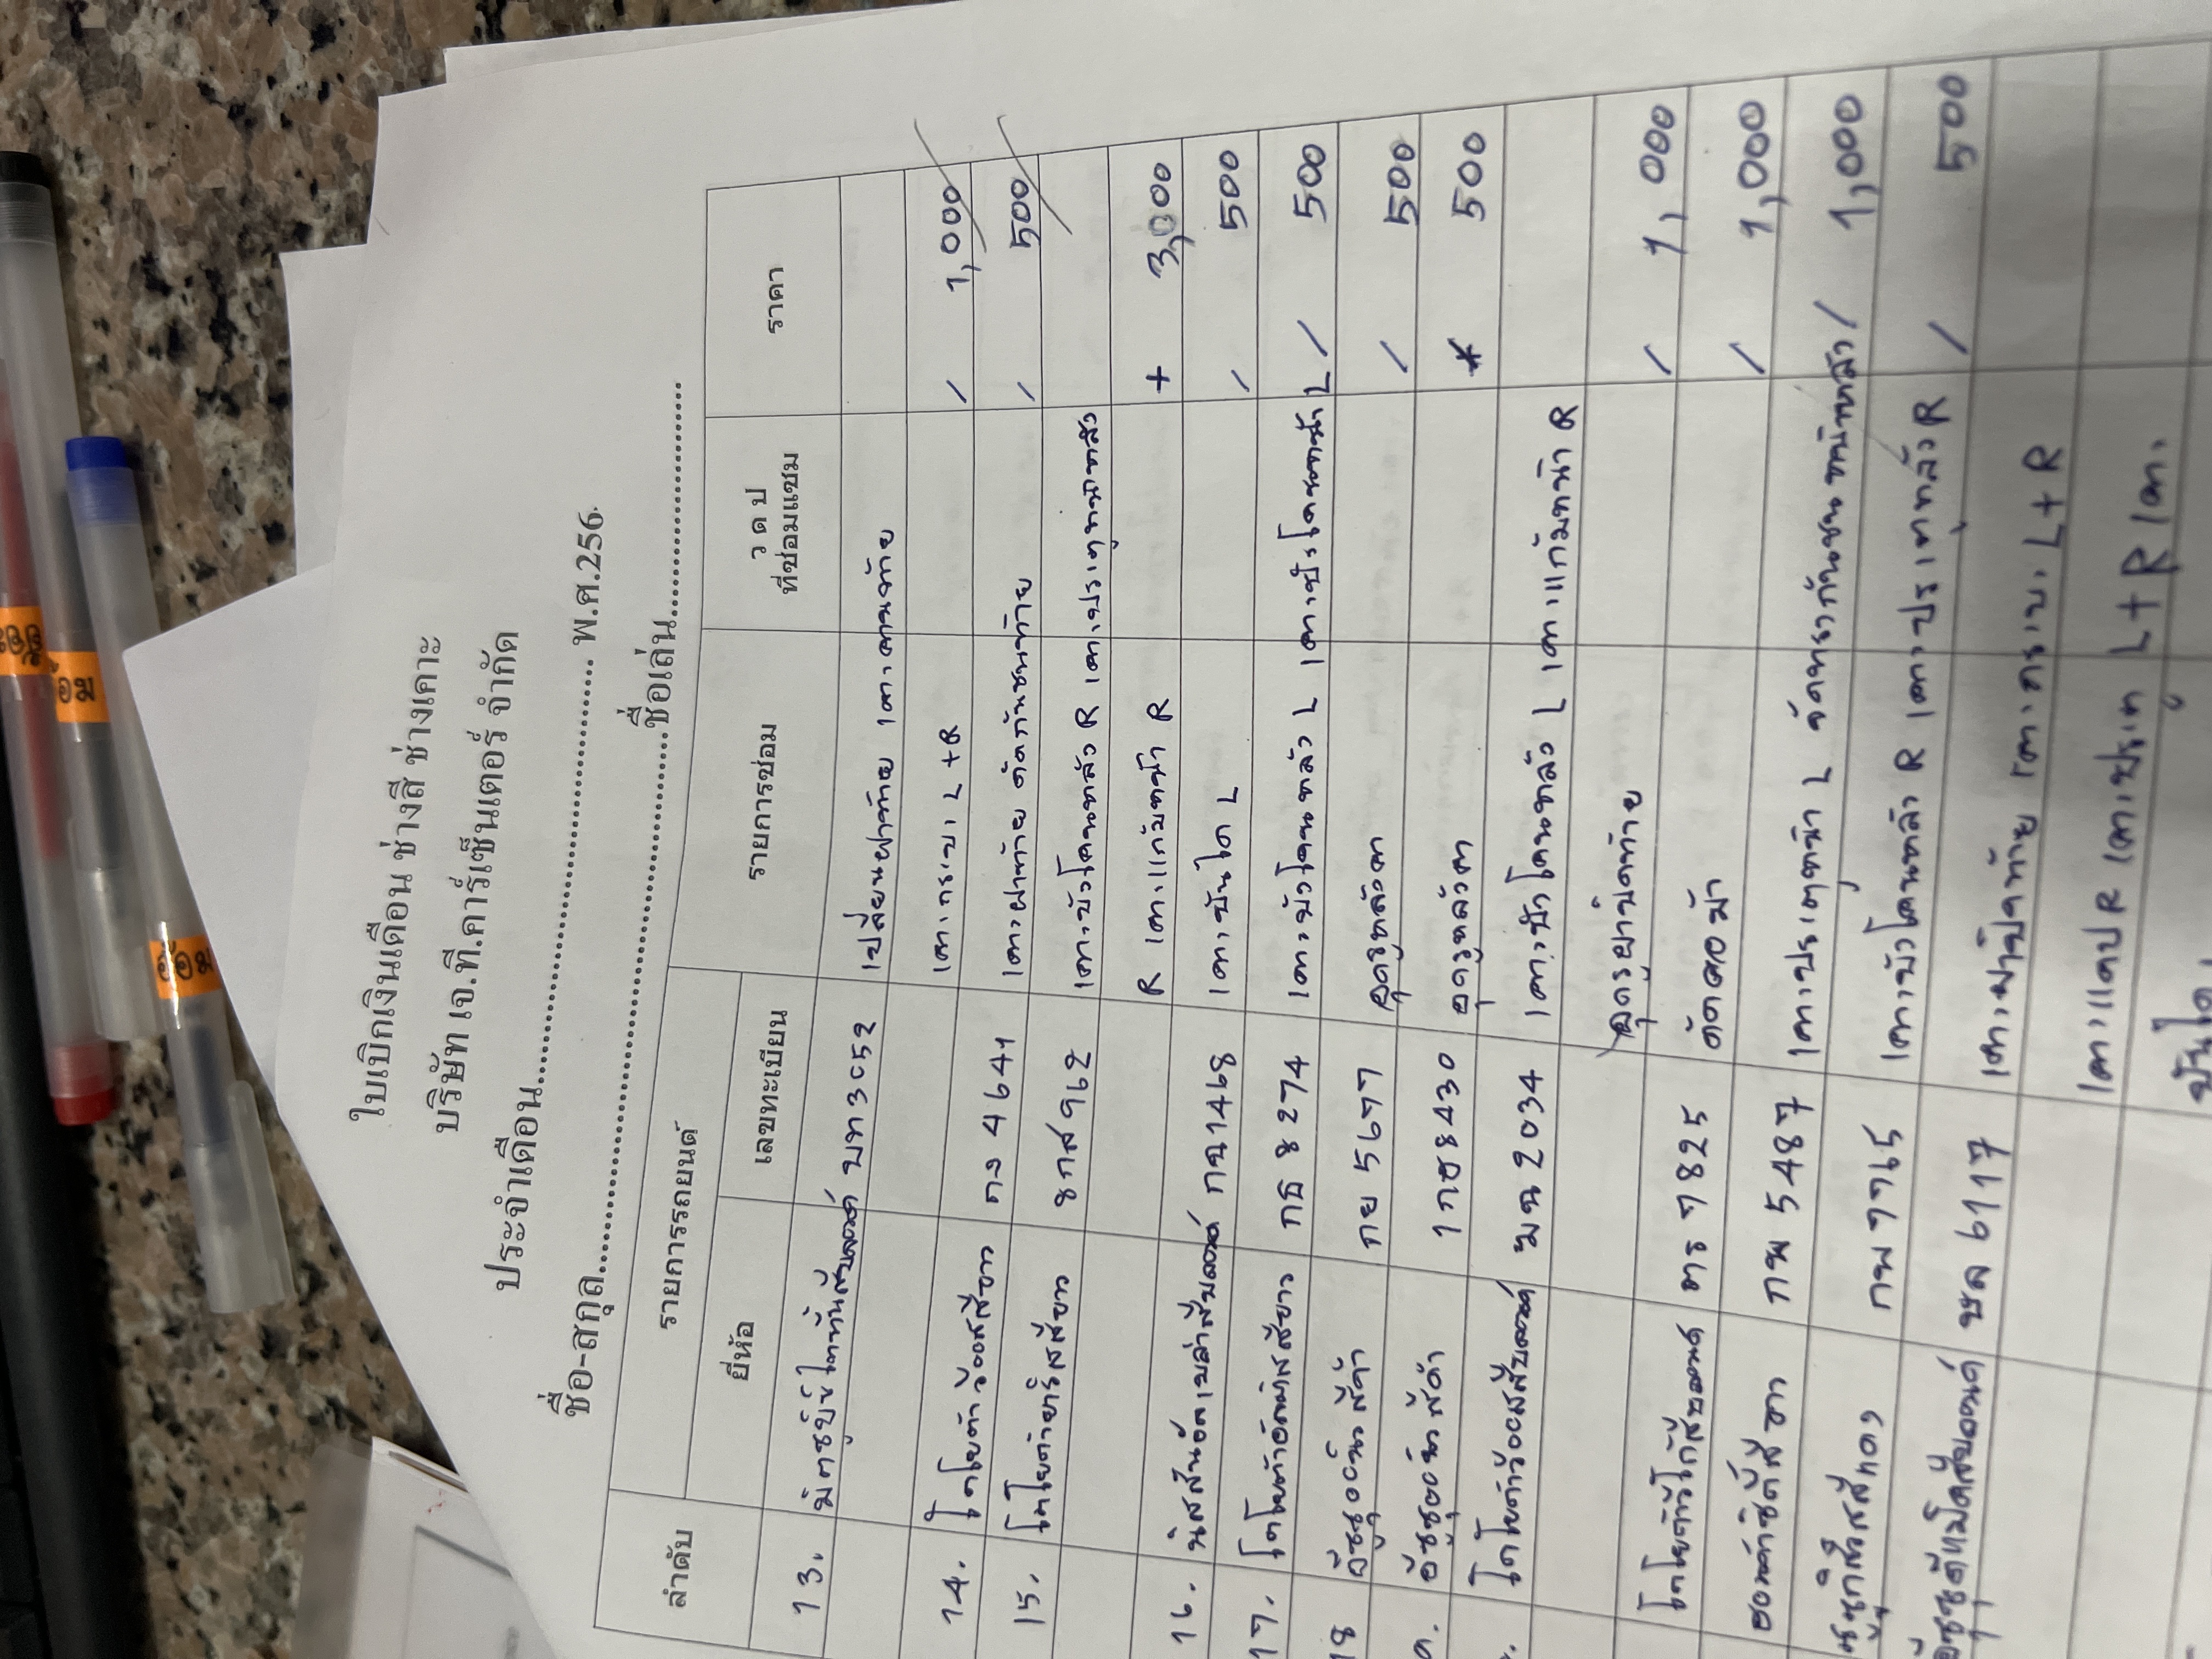 ใบเบิกเงินเดือน ช่างสี ช่างเคาะ
บริษัท เจ.ที.คาร์เซ็นเตอร์ จำกัด
ประจำเดือน........................................ พ.ศ.256
ชื่อ-สกุล........................................ชื่อเล่น....................
ลำดับ รายการรถยนต์ รายการซ่อม ว ด ป ที่ซ่อมแซม ราคา
ยี่ห้อ เลขทะเบียน
13. มิตซูบิชิไททันสีบลอนด์ บท 3052 เปลี่ยนฝาท้าย เคาะคานท้าย
เคาะกระบะ L+R / 1,000
14. โตโยต้าวีออสสีขาว กง 4641 เคาะฝาท้าย ดัดกันชนท้าย / 500
15. โตโยต้ายาริสสีขาว 8กส 962 เคาะบังโคลนหลัง R เคาะประตูหน้าหลัง
R เคาะแก้มหน้า R + 3,000
16. นิสสันอัลเมล่าสีบลอนด์ กฉ 1468 เคาะบันได L / 500
17. โตโยต้าอัลติสสีขาว กธ 8274 เคาะบังโคลนหลัง L เคาะบังโคลนหน้า L / 500
18 อีซูซุออนิวสีดำ กย 5677 อุดรูหลังคา / 500
อีซูซุออนิวสีดำ 1กช 8430 อุดรูหลังคา * 500
โตโยต้าวีออสสีบลอนด์ 2034 เคาะบังโคลนหลัง L เคาะแก้มหน้า R
อุดรูฝาปิดท้าย / 1,000
โตโยต้าวีโก้สีบลอนด์ 7825 ตัดคอม้า / 1,000
ฮอนด้าซิตี้สีขาว กพ 5487 เคาะประตูหน้า L / 1,000
สีแดง กพ 7765 เคาะบังโคลนหลัง R เคาะประตูหลัง R / 500
อีซูซุดีแม็คสีบลอนด์ 6117 เคาะฝาปิดท้าย เคาะกระบะ L+R
เคาะแคป R เคาะประตู L+R เคาะ